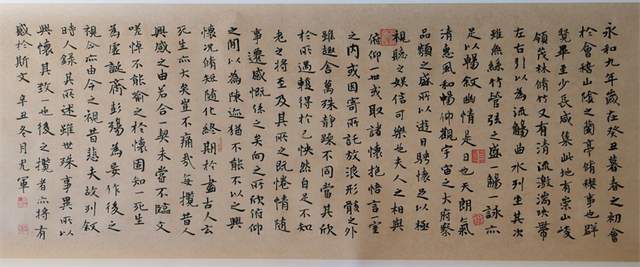 永和九年歲在癸丑暮春之初會
於會稽山陰之蘭亭脩禊事也群
賢畢至少長咸集此地有崇山峻
領茂林脩竹又有清流激湍映帶
左右引以為流觴曲水列坐其次
雖無絲竹管弦之盛一觴一詠亦
足以暢敘幽情是日也天朗氣
清惠風和暢仰觀宇宙之大俯察
品類之盛所以遊目騁懷足以極
視聽之娛信可樂也夫人之相與
俯仰一世或取諸懷抱悟言一室
之內或因寄所託放浪形骸之外
雖趣舍萬殊靜躁不同當其欣
於所遇蹔得於己快然自足不知
老之將至及其所之既惓情隨
事遷感慨係之矣向之所欣俯仰
之間以為陳迹猶不能不以之興
懷況脩短隨化終期於盡古人云
死生亦大矣豈不痛哉每攬昔人
興感之由若合一契未嘗不臨文
嗟悼不能喻之於懷固知一死生
為虛誕齊彭殤為妄作後之
視今亦由今之視昔悲夫故列敘
時人錄其所述雖世殊事異所以
興懷其致一也後之攬者亦將有
感於斯文 辛丑冬月